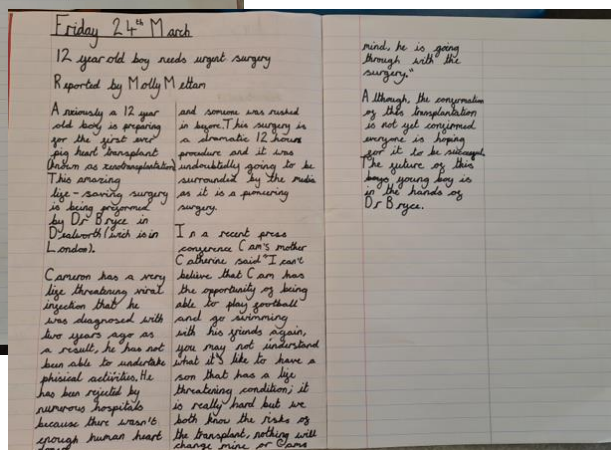 Friday 24th March
12 year old boy needs urgent surgery
Reported by Molly Mettan
Anxiously a 12 year
old body is preparing
for the first ever
pig heart transplant
(known as xenotransplantation)
This amazing
life-saving surgery
is being preformed
by Dr Bryce in
Dealworth (wich is in
London).
Cameron has a very
life threatening viral
infection that he
was diagnosed with
two years ago as
a result, he has not
been able to undertake
phisical activities. He
has been rejected by
numurous hospitals
because there wasn't
enough human heart
and someone was rushed
in before. This surgery is
a dramatic 12 hours
procedure and it was
undoubtedly going to be
surrounded by the media
as it is a pioneering
surgery.
In a recent press
conference Cam's mother
Catherine said "I can't
believe that Cam has
the opportunity of being
able to play football
and go swimming
with his friends again,
you may not understand
what it's like to have a
son that has a life
threatening condition; it
is really hard but we
both know the risks of
the transplant, nothing will
change mine or Cams
mind, he is going
through with the
surgery."
Although, the confirmation
of this transplantation
is not yet confirmed
everyone is hoping
for it to be successful.
The future of this
boys young boy is
in the hands of
Dr Bryce.